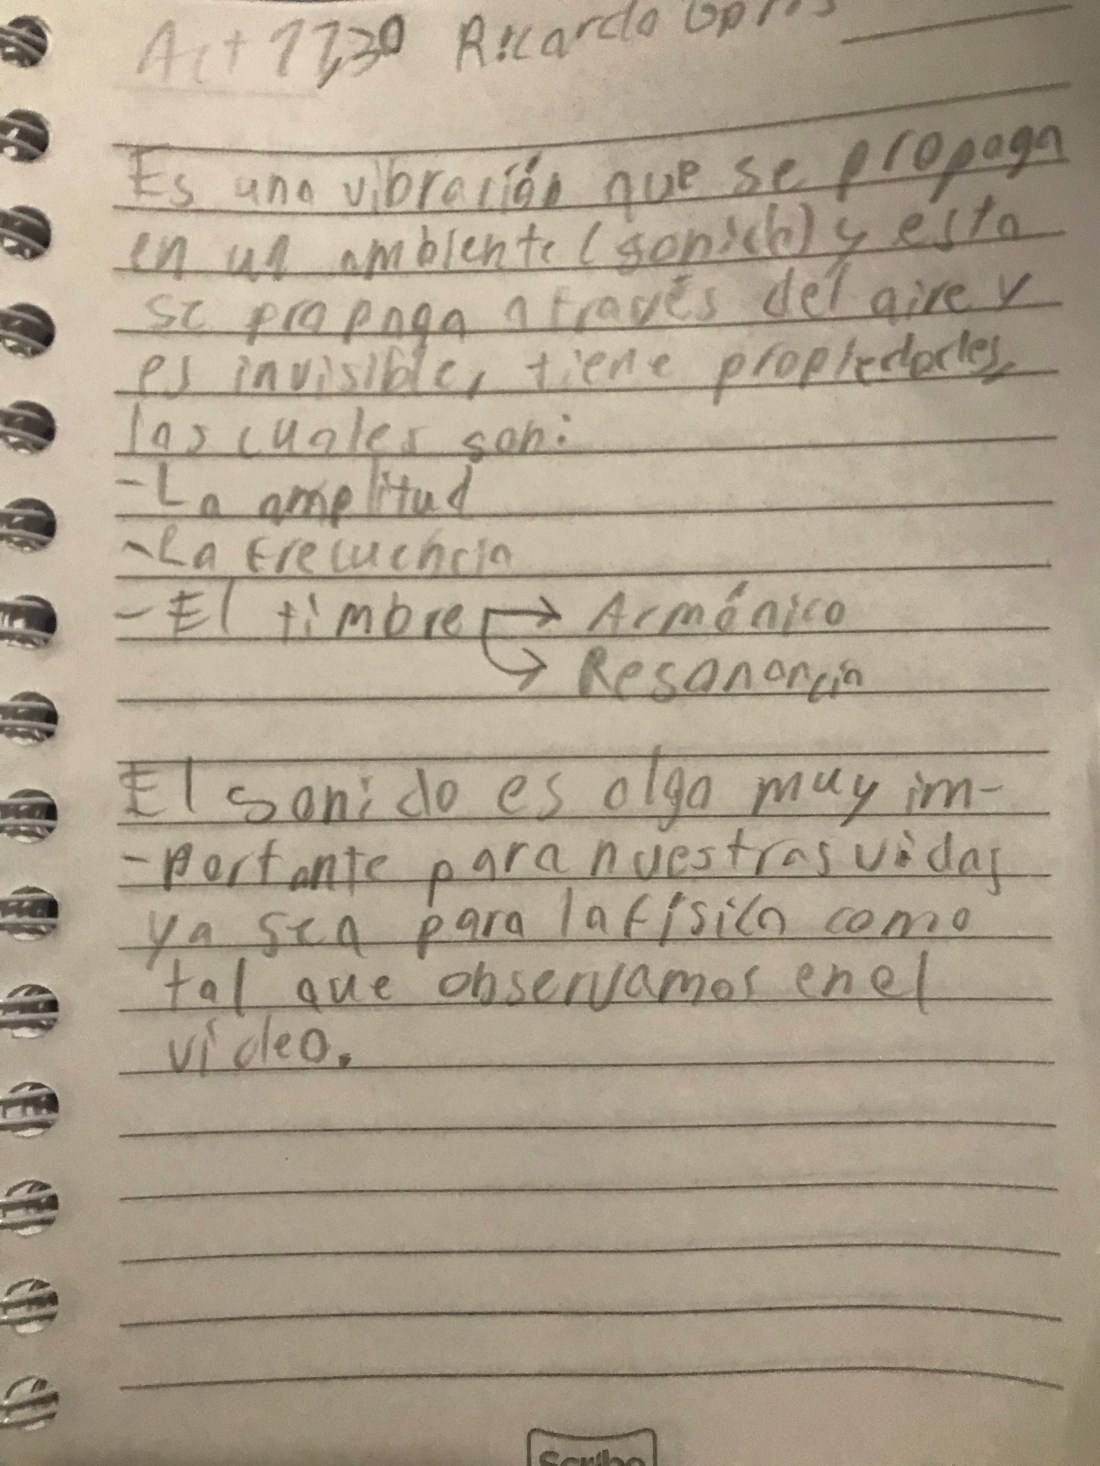 Act 11,30 Ricardo
Es una vibración que se propaga
en un ambiente (sonich) y esta
se propaga através del aire y
es invisible, tiene propiedades,
las cuales son:
-La amplitud
-La frecuencia
-El timbre → Armónico
→ Resonancia
El sonido es algo muy im-
-portante para nuestras vidas
ya sea para la física como
tal que observamos en el
video.
Scribe